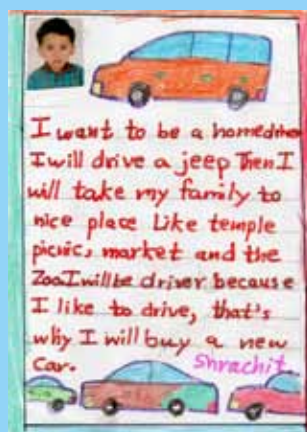 I want to be a homedriver
I will drive a jeep Then I
will take my family to
nice place Like temple
picnic, market and the
Zoo.I will be driver because
I like to drive, that's
why I will buy a new
car. Shrachit